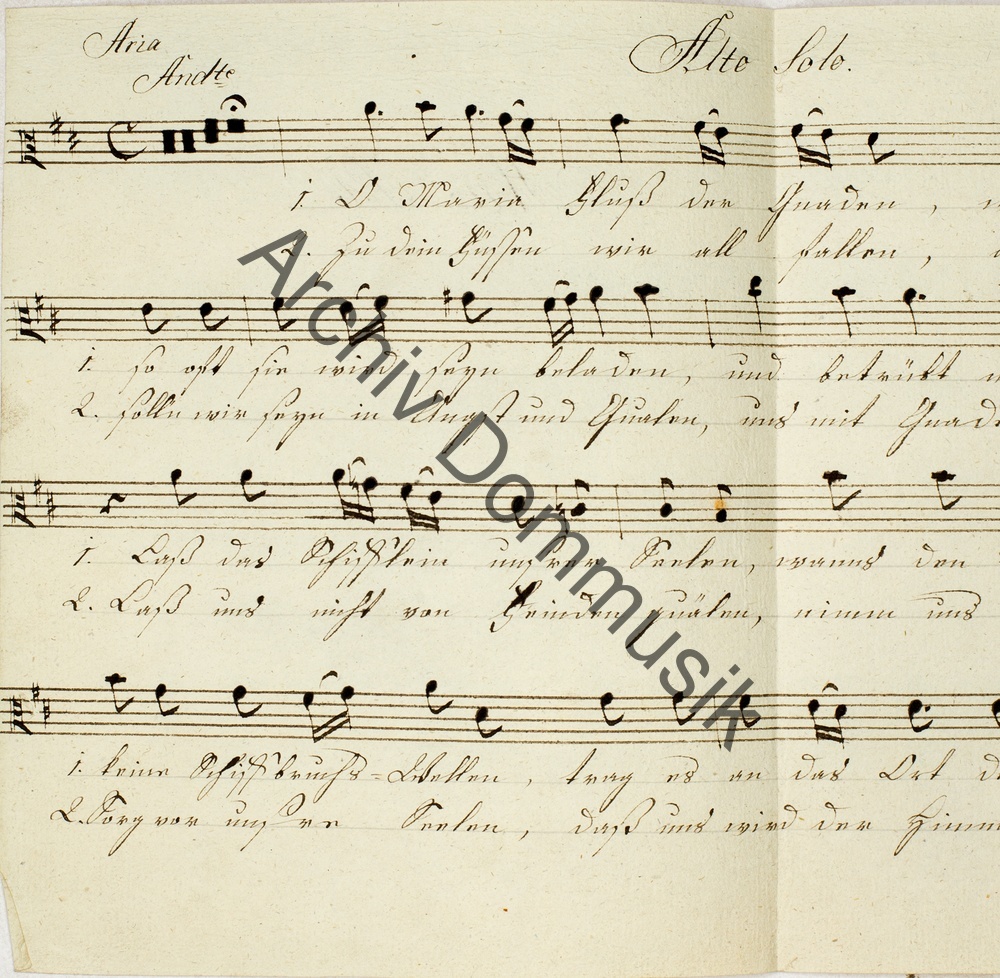 Aria
Andte
Alto Solo.
1. O Maria Fluß der Gnaden,
2. Zu dein Füssen wir all fallen,
1. so oft sie wird seyn beladen, und betrübt
2. solln wir seyn in Angst und Qualen, uns mit Gnad
1. Laß das Schifflein unsrer Seelen, wanns den
2. Laß uns nicht von Feinden quälen, nimm uns
1. keine Schiffbruchs=Wellen, trag es an das Ort
2. Sorg vor unsre Seelen, daß uns wird der Himm
Archiv Dommusik